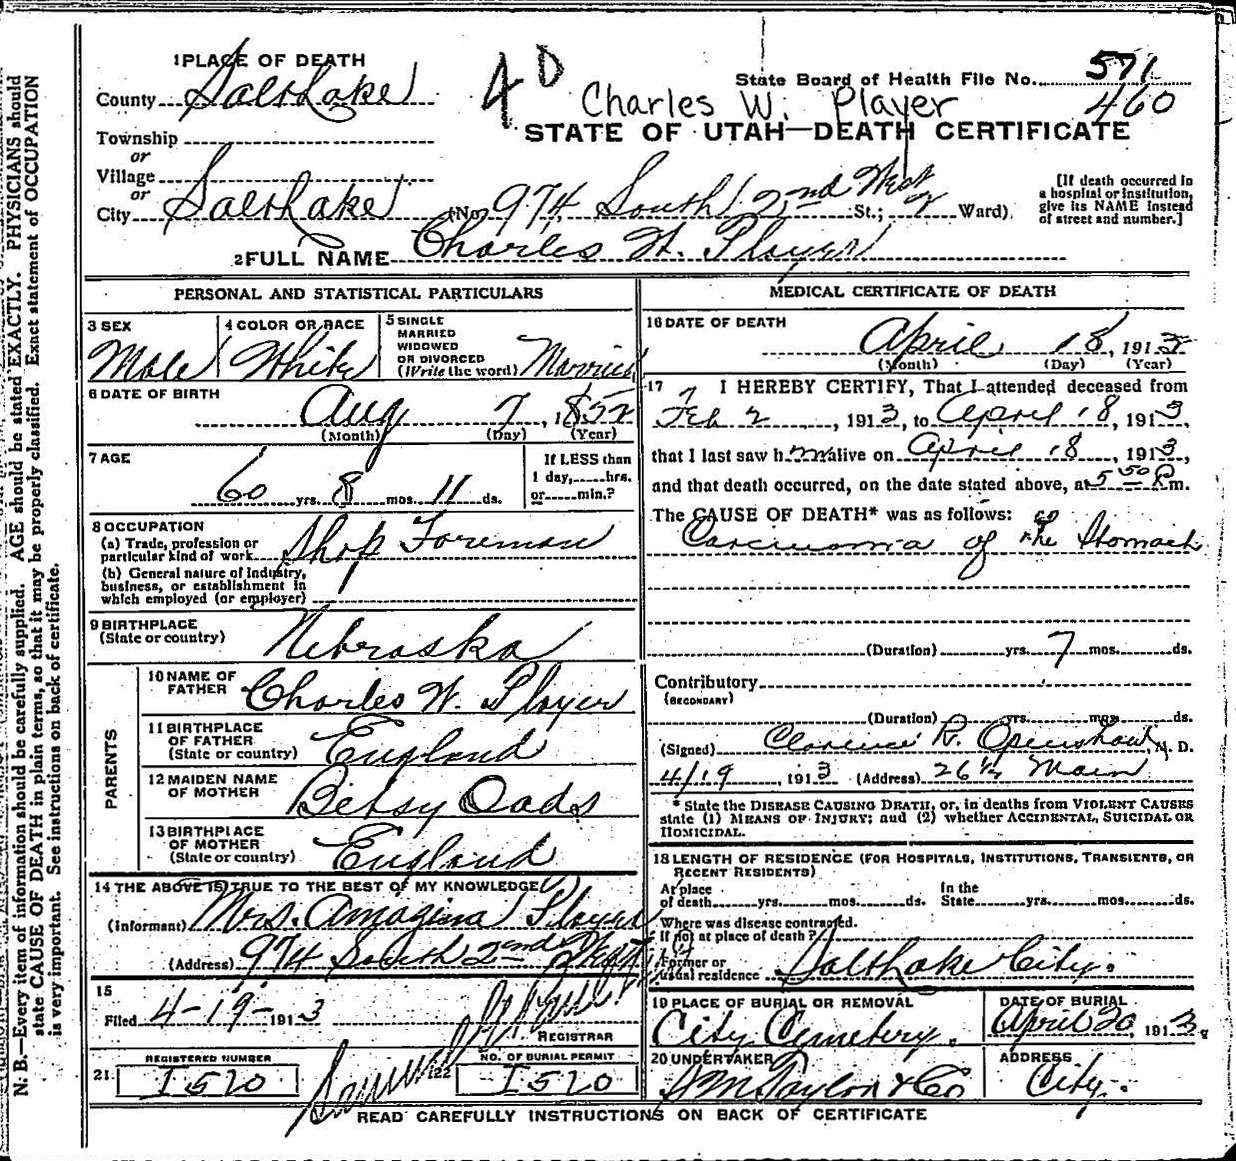 1 PLACE OF DEATH
County Salt Lake
Township
or
Village
or
City Salt Lake (No. 974 South 2nd West St.; Ward)
4 D
State Board of Health File No. 571
460
Charles W. Player
STATE OF UTAH—DEATH CERTIFICATE
[If death occurred in a hospital or institution, give its NAME instead of street and number.]
2 FULL NAME Charles W. Player
PERSONAL AND STATISTICAL PARTICULARS
3 SEX Male
4 COLOR OR RACE White
5 SINGLE MARRIED WIDOWED OR DIVORCED (Write the word) Married
6 DATE OF BIRTH Aug 7, 1852
(Month) (Day) (Year)
7 AGE 60 yrs. 8 mos. 11 ds.
If LESS than 1 day, hrs. or min.?
8 OCCUPATION
(a) Trade, profession or particular kind of work Shop Foreman
(b) General nature of Industry, business, or establishment in which employed (or employer)
9 BIRTHPLACE (State or country) Nebraska
PARENTS
10 NAME OF FATHER Charles W. Player
11 BIRTHPLACE OF FATHER (State or country) England
12 MAIDEN NAME OF MOTHER Betsy Oads
13 BIRTHPLACE OF MOTHER (State or country) England
14 THE ABOVE IS TRUE TO THE BEST OF MY KNOWLEDGE
(Informant) Mrs. Amazina Player
(Address) 974 South 2nd West
15
Filed 4-19-1913
REGISTRAR
REGISTERED NUMBER
21 I 570
NO. OF BURIAL PERMIT
22 I 570
MEDICAL CERTIFICATE OF DEATH
16 DATE OF DEATH
April 18, 1913
(Month) (Day) (Year)
17 I HEREBY CERTIFY, That I attended deceased from
Feb 2, 1913, to April 18, 1913,
that I last saw him alive on April 18, 1913,
and that death occurred, on the date stated above, at 5 50 P m.
The CAUSE OF DEATH* was as follows:
Carcinoma of the Stomach
(Duration) yrs. 7 mos. ds.
Contributory
(SECONDARY)
(Duration) yrs. mos. ds.
(Signed) Clarence R. Openshaw, M. D.
4/19, 1913 (Address) 26 1/2 Main
* State the DISEASE CAUSING DEATH, or, in deaths from VIOLENT CAUSES
state (1) MEANS OF INJURY; and (2) whether ACCIDENTAL, SUICIDAL OR
HOMICIDAL.
18 LENGTH OF RESIDENCE (FOR HOSPITALS, INSTITUTIONS, TRANSIENTS, OR
RECENT RESIDENTS)
At place of death yrs. mos. ds. In the State yrs. mos. ds.
Where was disease contracted.
if not at place of death?
Former or usual residence Salt Lake City.
19 PLACE OF BURIAL OR REMOVAL
City Cemetery.
DATE OF BURIAL
April 20, 1913
20 UNDERTAKER
S M Taylor & Co
ADDRESS
City.
READ CAREFULLY INSTRUCTIONS ON BACK OF CERTIFICATE
N. B.—Every item of information should be carefully supplied. AGE should be stated EXACTLY. PHYSICIANS should
state CAUSE OF DEATH in plain terms, so that it may be properly classified. Exact statement of OCCUPATION
is very important. See instructions on back of certificate.